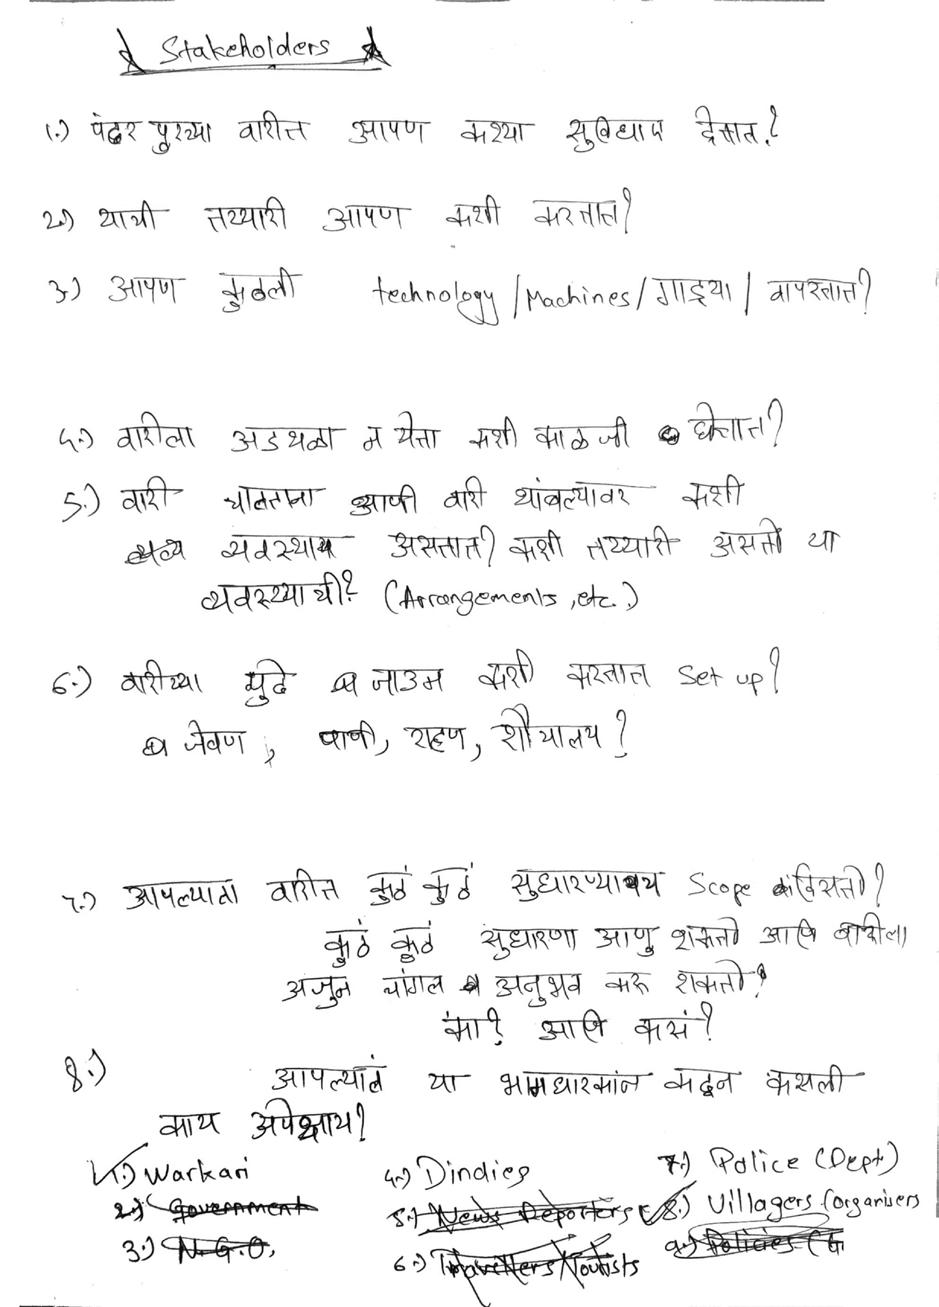 Stakeholders
1.) पंढरपुरच्या वारीत आपण कश्या सुविधाए देतात?
2.) याची तय्यारी आपण कशी करतात?
3.) आपण कुठली technology/Machines/गाड्या/ वापरतात?
4.) वारीला अडथळा न येता कशी काळजी घेतात?
5.) वारी चालताना आणी वारी थांबल्यावर कशी
व्यवस्थाए असतात? कशी तय्यारी असते या
व्यवस्थाची? (Arrangements, etc.)
6.) वारीच्या पुढे जाउन कशी करतात Set up?
जेवण, पाणी, राहण, शौचालय?
7.) आपल्याला वारीत कुठं कुठं सुधारण्याचय Scope दिसतो?
कुठं कुठं सुधारणा आणु शकतो आणि वारीला
अजुन चांगल अनुभव करू शकतो?
का? आणि कसं?
8.) आपल्याला या कडून कसली
काय अपेक्षाय?
1.) Warkari 4.) Dindies 7.) Police (Dept)
2.) Government 5.) News Reporters 8.) Villagers (organisers
3.) N.G.O. 6.) Travellers/Tourists 9.) Policies (G